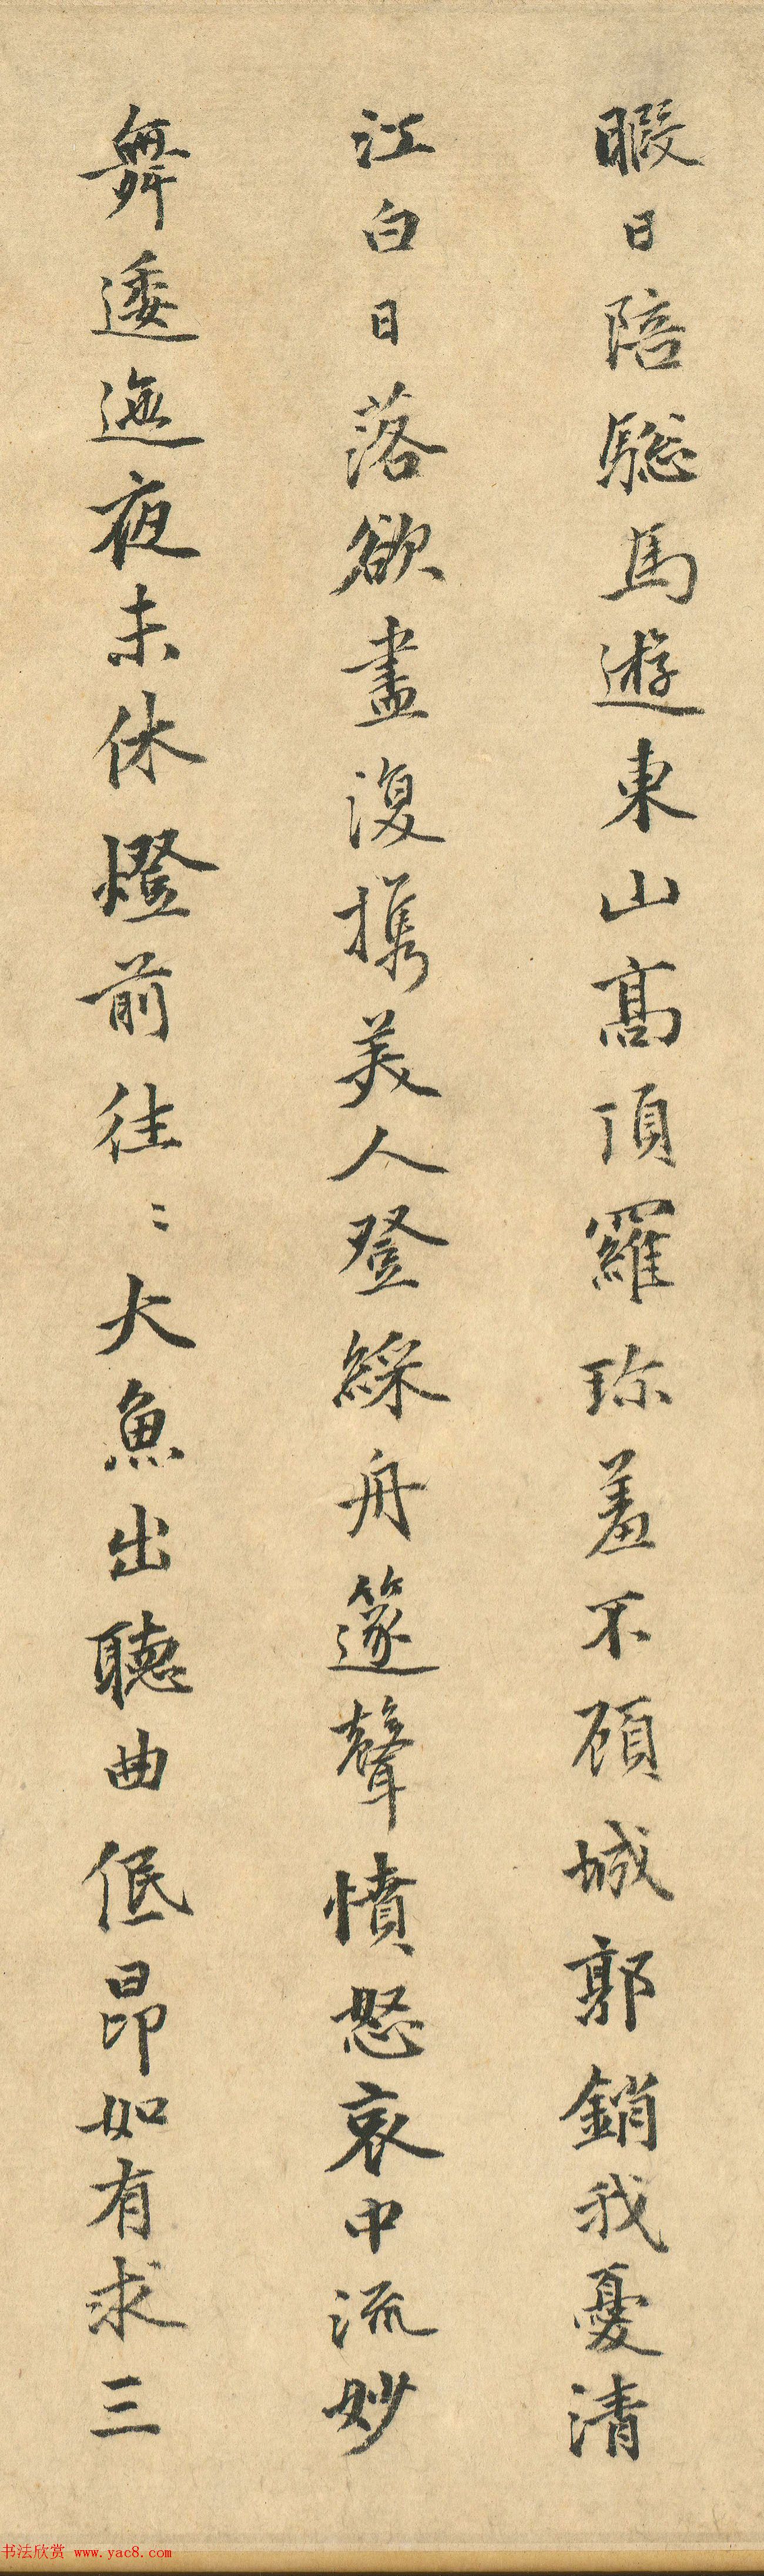 暇日陪驄馬遊東山高頂羅珎羞不顧城郭銷我憂清
江白日落欲盡復携美人登綵舟篴聲憤怒哀中流妙
舞逶迤夜未休燈前往〻大魚出聴曲低昂如有求三
书法欣赏 www.yac8.com